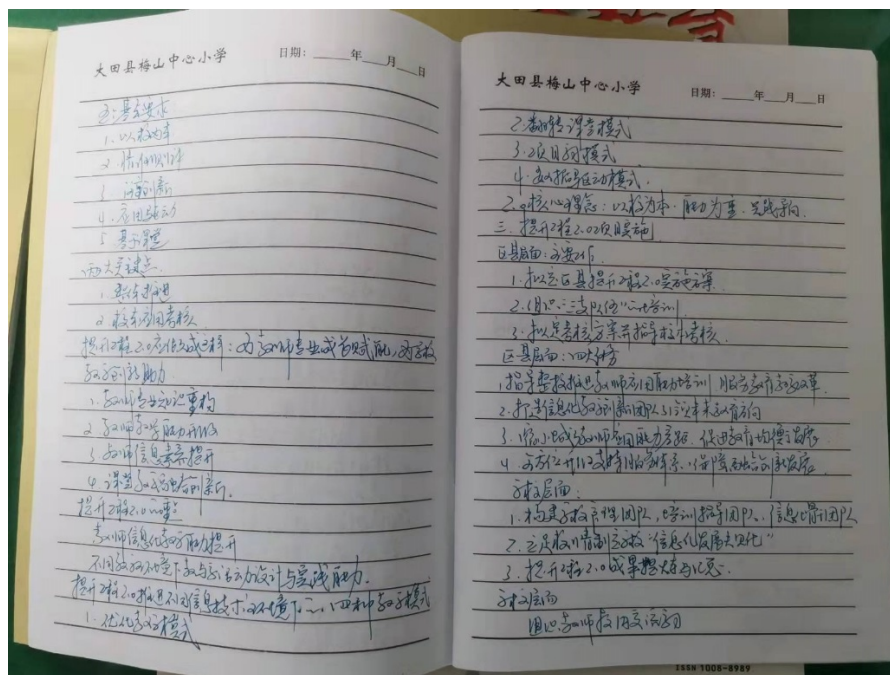 大田县梅山中心小学 日期: 年 月 日
五:基本要求
1. 以校为本
2.
3. 创新
4. 应用驱动
5.
两大关键点
1. 整体推进
2. 校本应用考核
提升工程2.0 :为教师专业成长赋能,为学校
教学创新助力
1. 教师专业知识重构
2. 教师教学能力升级
3. 教师信息素养提升
4. 课堂教学融合创新.
提升工程2.0
教师信息化教学能力提升
不同教学环境下教与学活动设计与实践能力.
提升工程2.0推进不同信息技术环境下 四种教学模式
1. 优化教学模式
大田县梅山中心小学 日期: 年 月 日
2. 翻转课堂模式
3. 项目 模式
4. 数据驱动模式.
2. 核心理念:以校为本·能力为重·实践导向.
三. 提升工程2.0项目实施
区县层面:主要工作
1. 拟定区县提升工程2.0实施方案
2. 组织“三支队伍” 培训
3. 拟定考核方案并指导校本考核.
区县层面:四大任务
1. 指导整校推进教师应用能力培训 服务教育教学改革
2. 打造信息化教学创新团队引领未来教育方向
3. 缩小城乡教师应用能力差距 促进教育均衡发展
4. 全方位升级支持服务体系,保障融合创新发展
学校层面:
1. 构建学校管理团队,培训指导团队、信息化骨干团队
2. 立足校情制定学校“信息化发展规划”
3. 提升工程2.0成果 与汇总.
学校层面
组织教师校内交流
ISSN 1008-8989